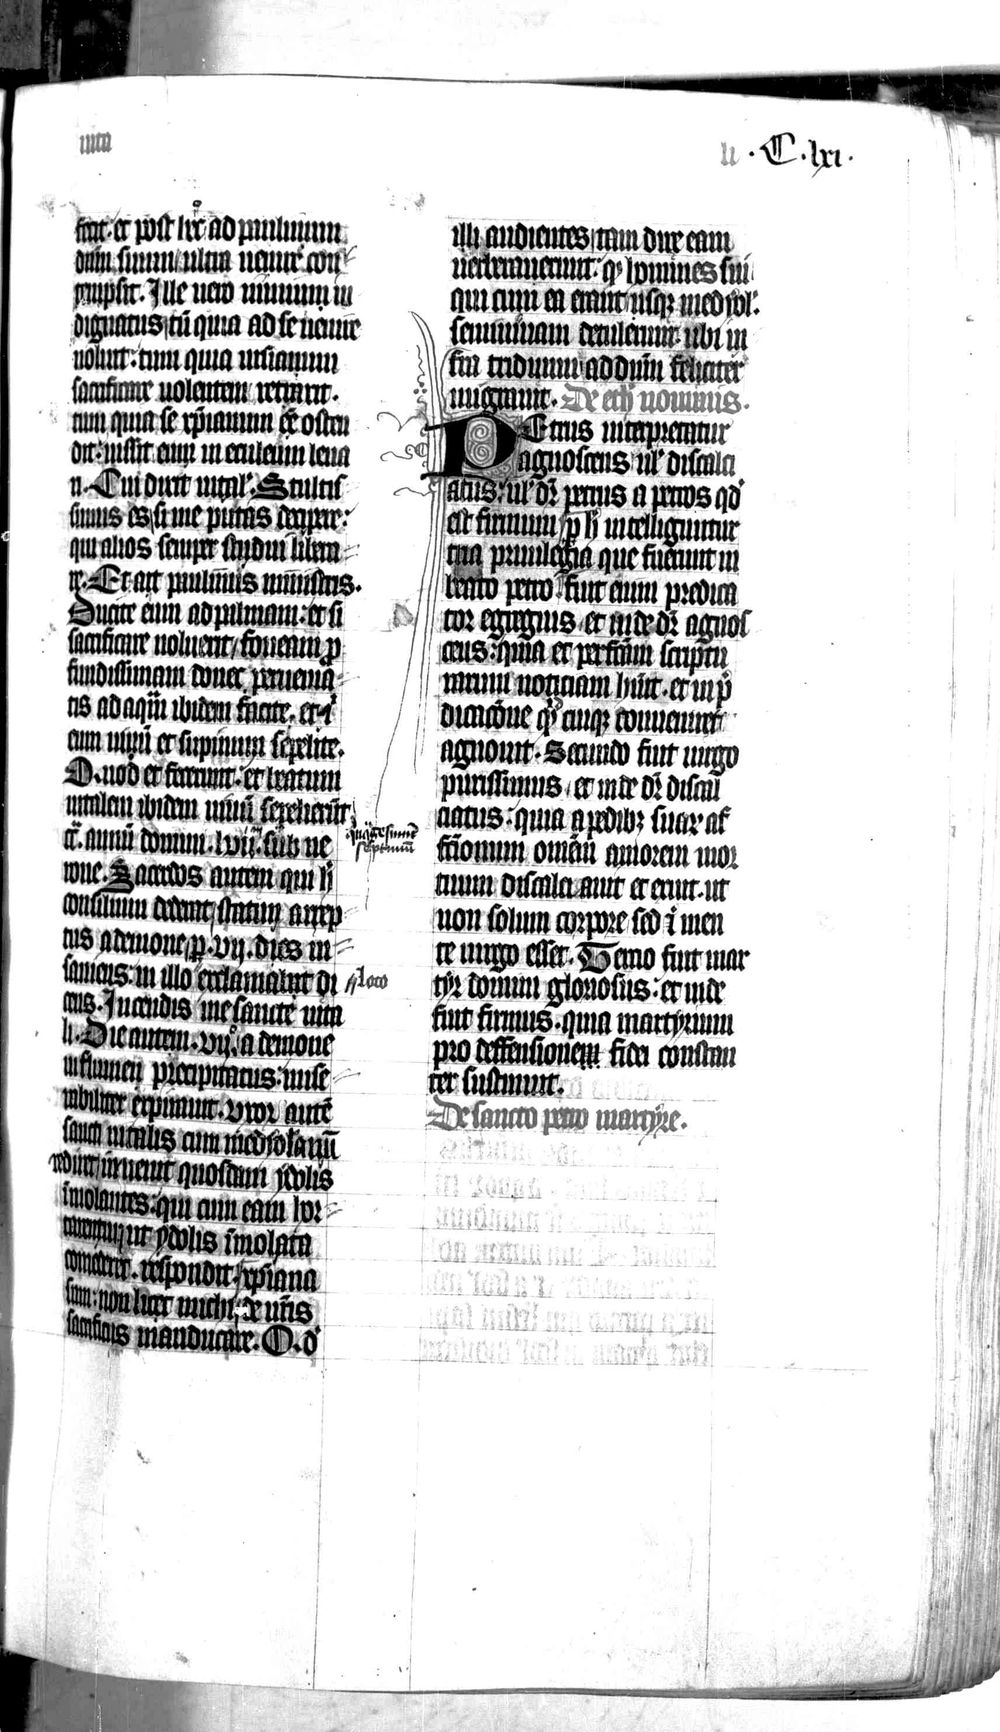 uita
li · C · lxi ·
fecit · et post hec ad paulinum
dum suum ultra uenire con
tempsit. Ille uero nimium in
dignatus tum quia ad se uenire
noluit : tum quia ursicinum
sacrificare uolentem retraxit.
tum quia se xpianum esse osten
dit : iussit eum in eculeum leua
ri. Cui dixit uital'. Stultis
simus es, si me putas decipere :
qui alios semper studui libera
re. Et ait paulinus ministris.
Ducite eum ad palmam : et si
sacrificare noluerit, foueam pro
fundissimam donec perueniā
tis ad aquā ibidem facite. et ī
eum uiuū et supinum sepelite.
Quod et fecerunt. et beatum
uitalem ibidem uiuū sepelierūt
circa annū domini . lvij. sub ne
quinquagesimū
septimum
rone. Sacerdos autem qui hoc
consilium dederat, statim arrep
tus a demone, per . vij. dies in
saniens : in illo exclamabat di
loco
cens. Incendis me sancte uita
lis. Die autem . vij. a demone
in flumen precipitatus : mise
rabiliter expirauit. Vxor autē
sancti uitalis cum mediolanū
rediret, inuenit quosdam ydolis
īmolantes : qui cum eam hor
tarentur, ut ydolis īmolata
comederet. respondit. xpiana
sum : non licet michi de uris
sacrificiis manducare. Q. d'
illi audientes, tam dure eam
uerberauerunt : q' homines sui
qui cum ea erant usque mediol'.
semiuiuam detulerunt. ubi in
fra triduum ad dnm feliciter
migrauit. De ethi nominis.
Petrus interpretatur
agnoscens ul' discalci
atus : ul' dr petrus a petros qd'
est firmum, per hoc intelliguntur
tria priuilegia que fuerunt in
beato petro, fuit enim predica
tor egregius et inde dr agnos
cens : quia et perfectam scriptu
rarum noticiam habuit. et in pre
dicacōne quid cuique conueniret
agnouit. Secundo fuit uirgo
purissimus, et inde dr discal
ciatus : quia a pedibus suarum af
fectionum omnem amorem mor
tuum discalciauit et exuit. ut
non solum corpore sed ī men
te uirgo esset. Tercio fuit mar
tyr domini gloriosus : et inde
fuit firmus. quia martyrium
pro deffensionem fidei constan
ter sustinuit.
De sancto petro martyre.